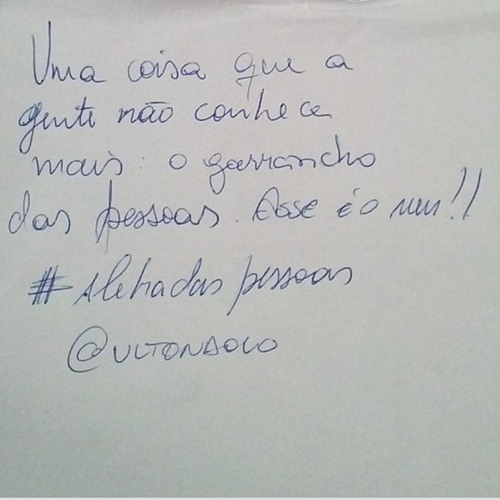 Uma coisa que a
gente não conhece
mais: o garrancho
das pessoas. Esse é o meu!!
#aletradaspessoas